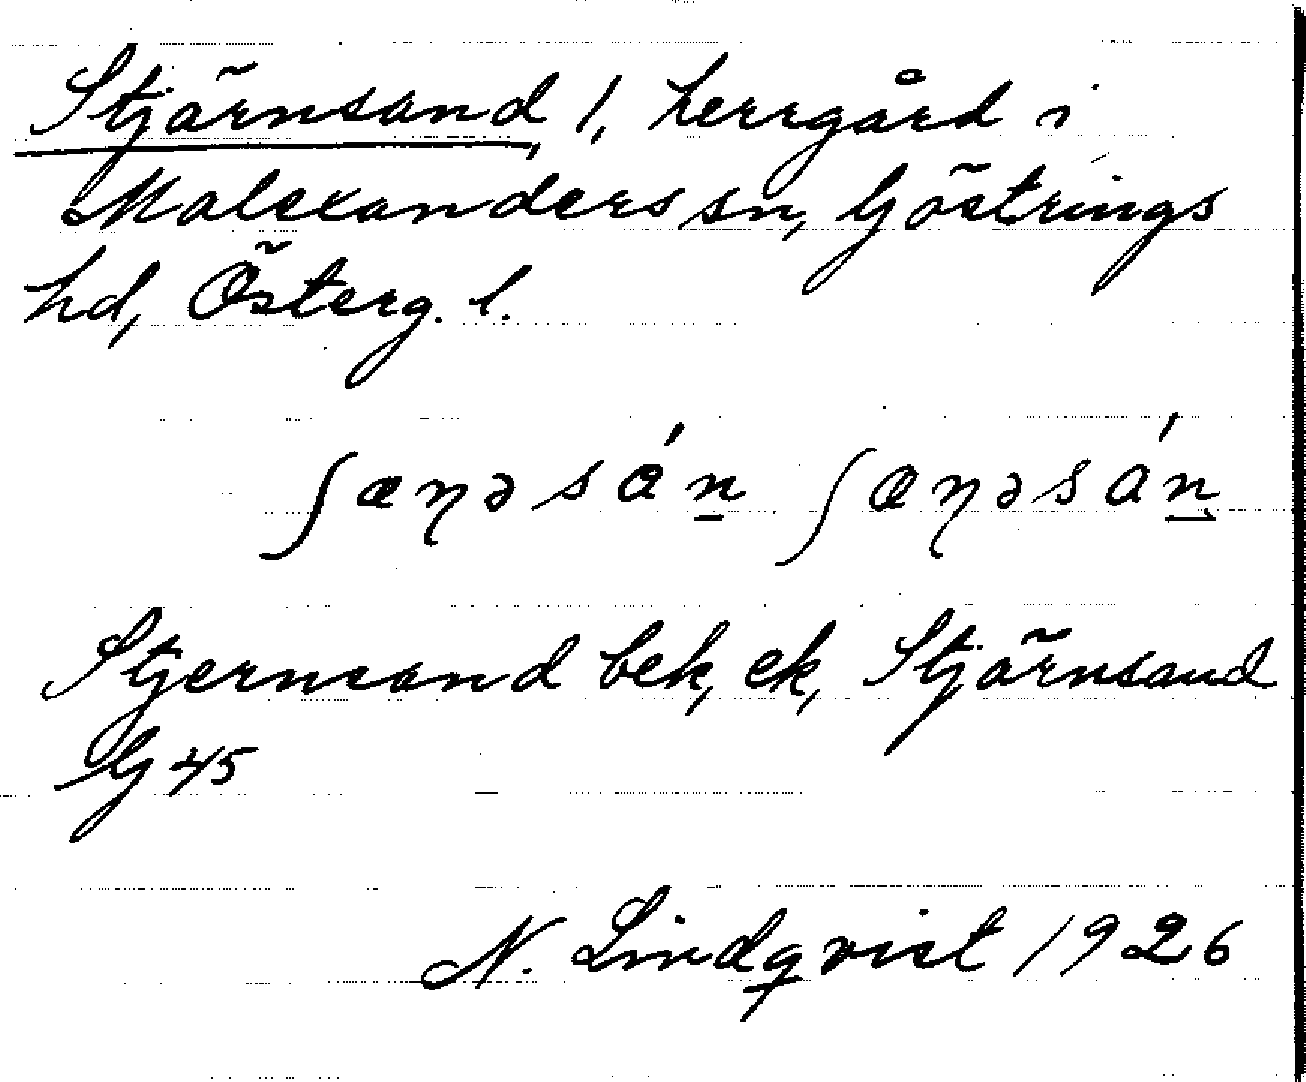 Stjärnsand 1, herrgård i
Malexanders sn, Göstrings
hd, Österg. l.
ʃæɳəsán̲ ʃæɳəsán̲
Stjernsand bek, ek, Stjärnsand
G 45
N. Lindqvist 1926